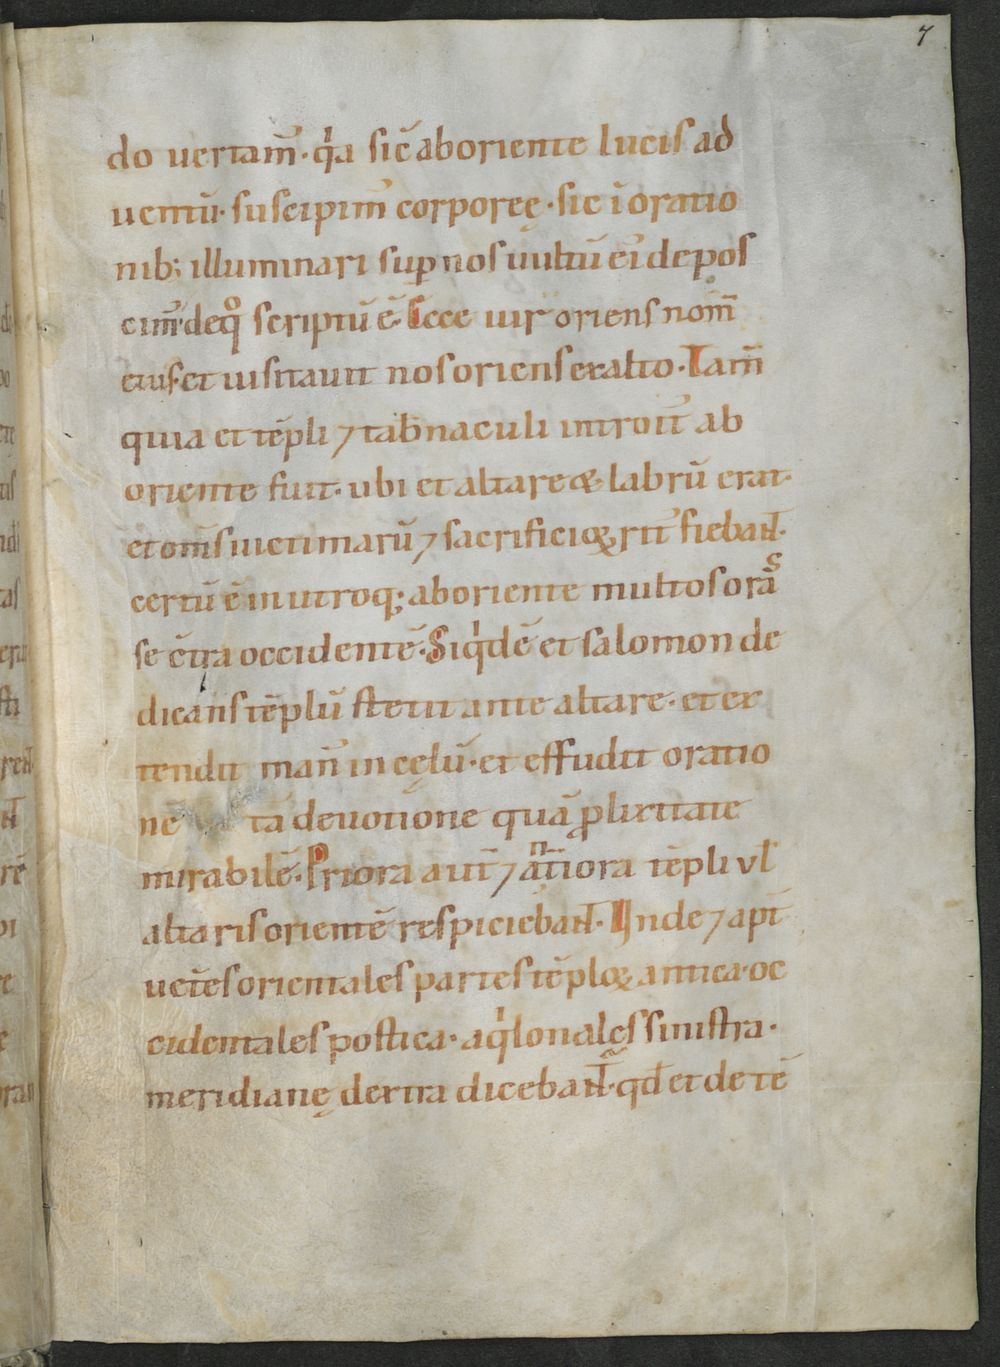 7
do uertam̅·qͥa sic̅ ab oriente lucis ad
uentu̅· suscipim᷒ corporeę· sic i̅ oratio
nib; illuminari sup̲ nos uultu̅ ei᷒ depos
cim᷒· de qͦ scriptu̅ e̅· Ecce uir oriens nom̅
eius· et uisitauit nos oriens ex alto· Tam̅
quia et te̅pli ⁊ tab̅naculi introit᷒ ab
oriente fuit· ubi et altare & labru̅ erat·
et om̅s uictimaru̅ ⁊ sacrificioꝝ rit᷒ fieban̅t·
certu̅ e̅ in utroq; ab oriente multos ora̅s
se c̅tra occidente̅· Siqͥde̅ et salomon de
dicans te̅plu̅ stetit ante altare· et ex
tendit man᷒ in cęlu̅· et effudit oratio
ne̅ ta̅ deuotione qua̅ ꝓlixitate
mirabile̅· Priora aut̅ ⁊ an̅tiora te̅pli vl̅
altaris oriente̅ respicieban̅t· Unde ⁊ ap̅t
uet̅es orientales partes te̅ploꝝ antica· oc
cidentales postica· aqͥlonales sinistra·
meridianę dextra diceban̅t᷒· qd̅ et de te̅